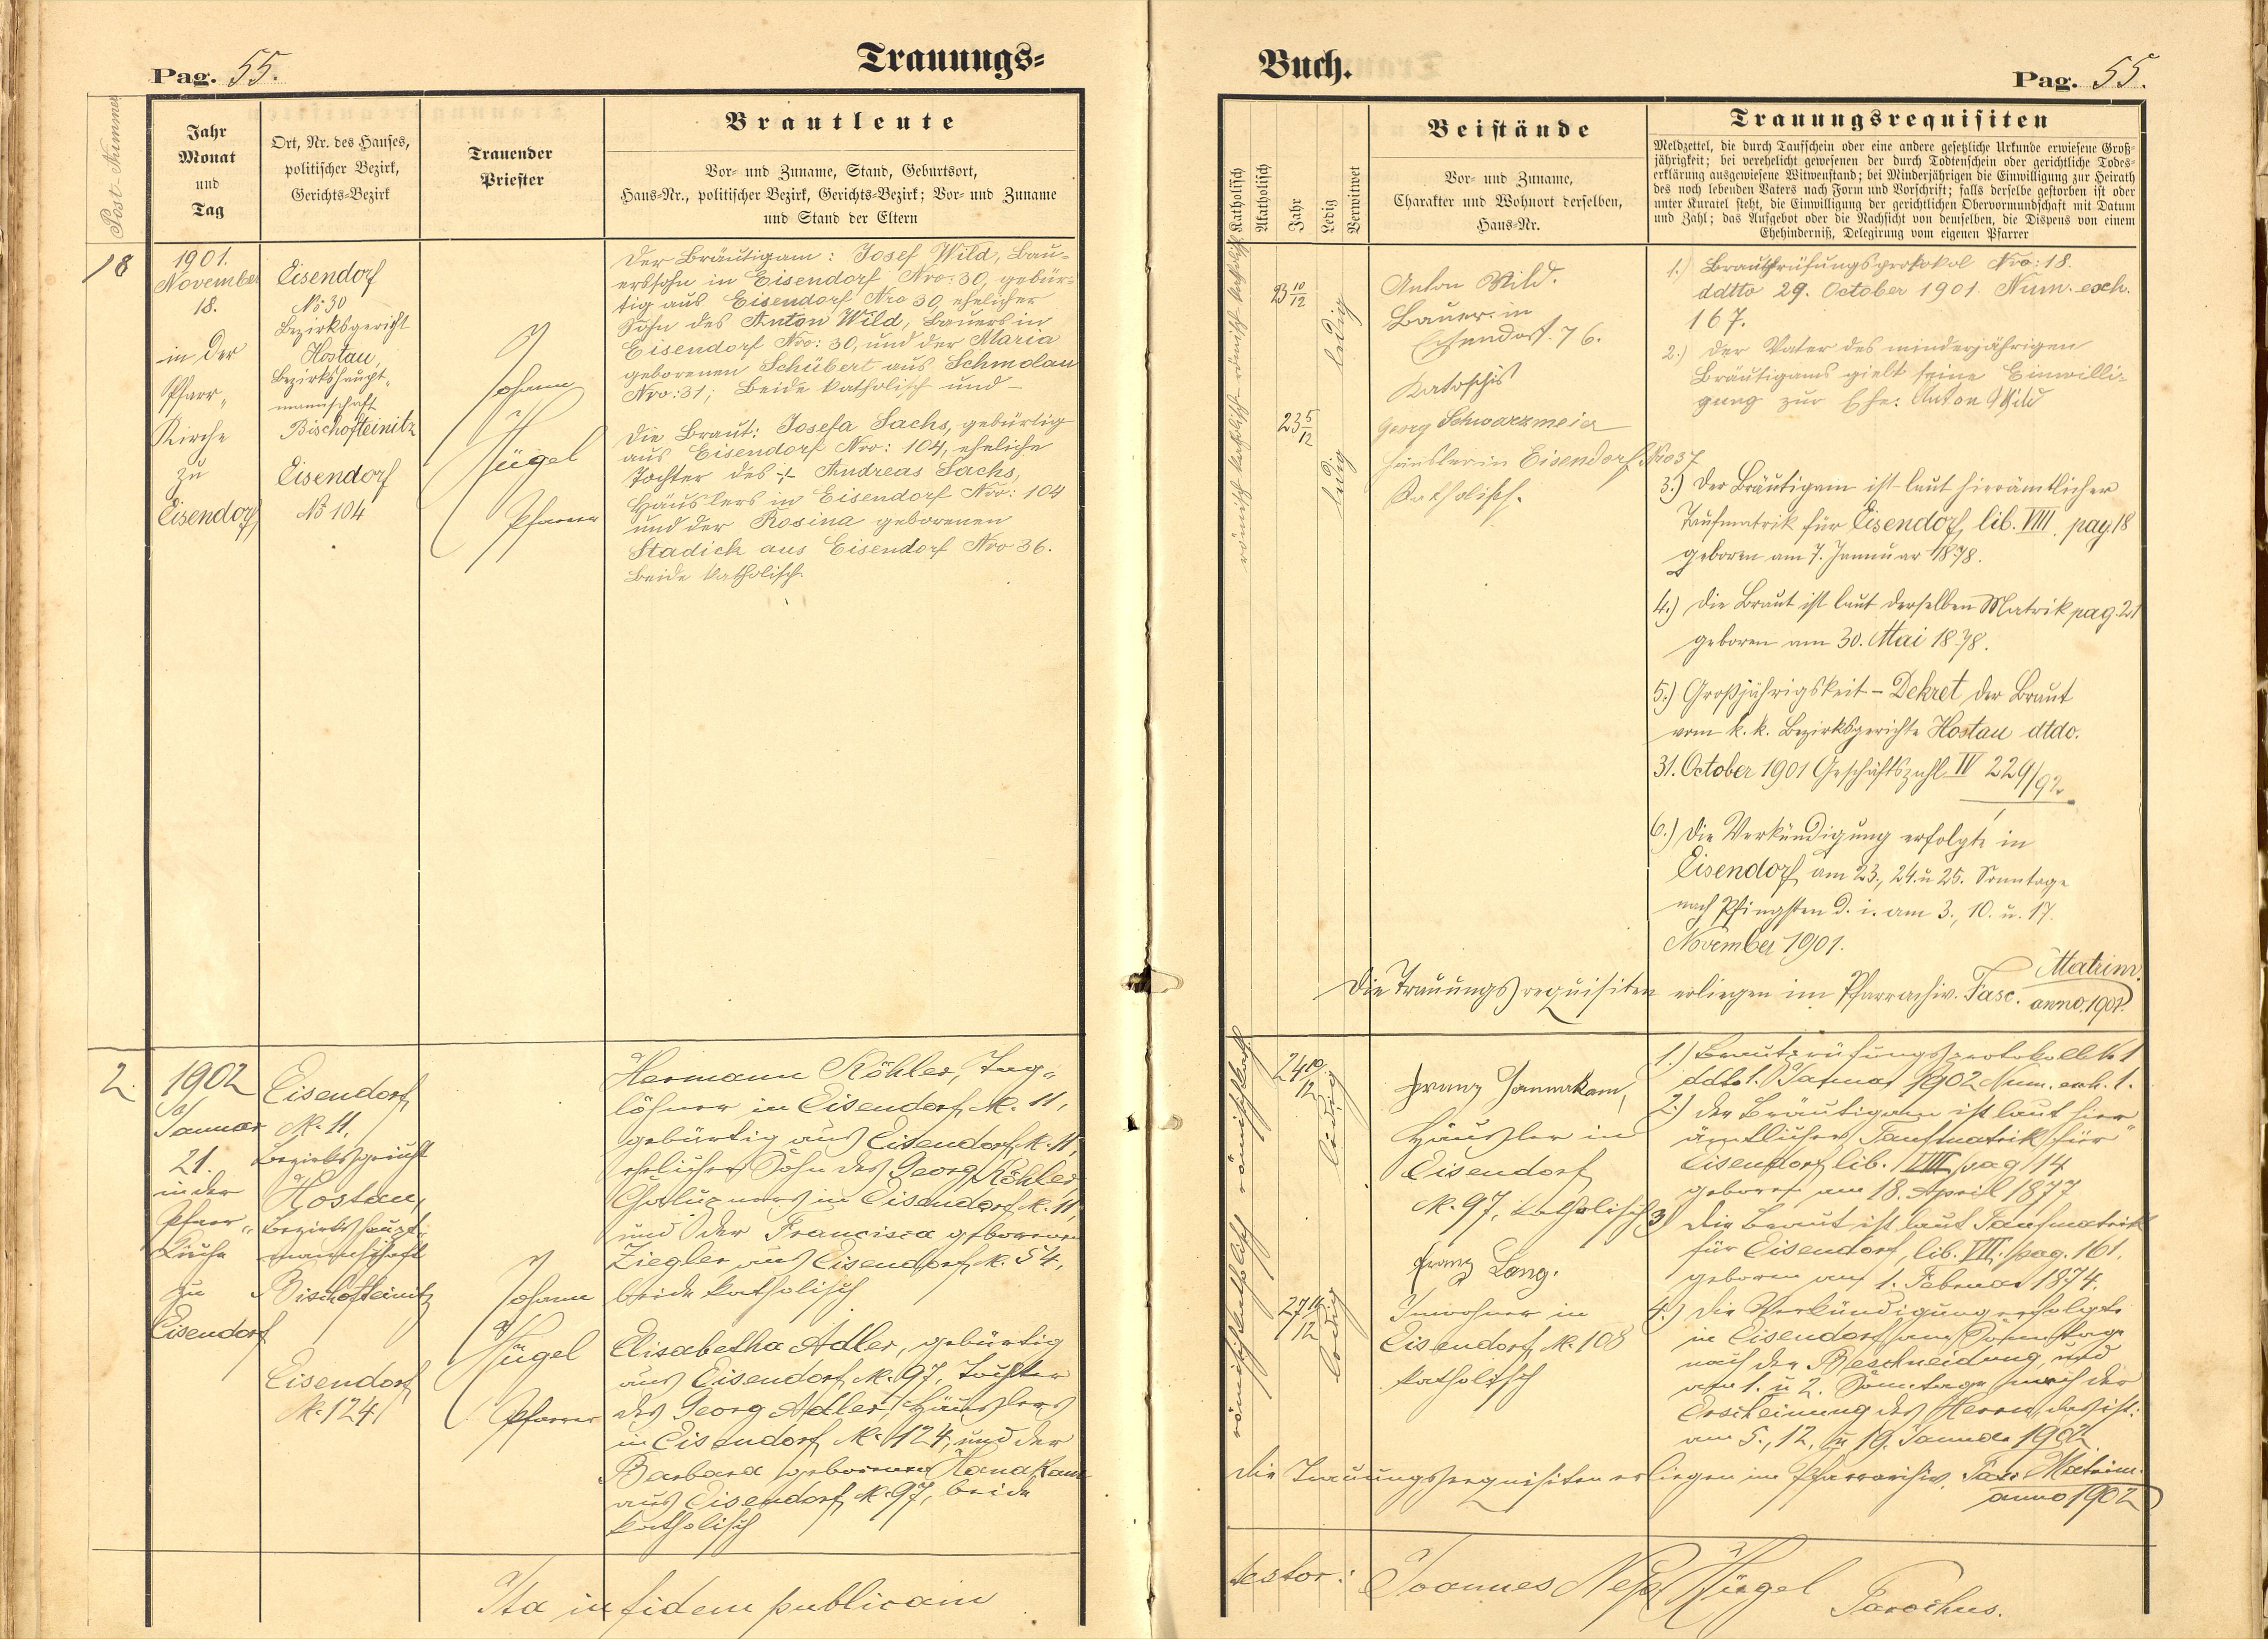 Trauungs-
Pag. 55.
Post-Nummer
Jahr
Monat
und
Tag
Ort, Nr. des Hauses,
politischer Bezirk,
Gerichts-Bezirk
Trauender
Priester
Brautleute
Vor- und Zuname, Stand, Geburtsort,
Haus-Nr., politischer Bezirk, Gerichts-Bezirk; Vor- und Zuname
und Stand der Eltern
18
1901.
November
18.
in der
Pfarr-
Kirche
zu
Eisendorf
Eisendorf
No 30
Bezirksgericht
Hostau,
Bezirkshaupt-
mannschaft
Bischofteinitz
Eisendorf
No 104
Johann
Hügel
Pfarrer
Der Bräutigam: Josef Wild, Bau-
erssohn in Eisendorf Nro: 30, gebür-
tig aus Eisendorf Nro 30, ehelicher
Sohn des Anton Wild, Bauers in
Eisendorf Nro: 30, und der Maria
geborenen Schübert aus Schmolau
Nro: 31; Beide katholisch und –
Die Braut: Josefa Sachs, gebürtig
aus Eisendorf Nro: 104, eheliche
Tochter des Andreas Sachs,
Häuslers in Eisendorf Nro: 104
und der Rosina geborenen
Stadick aus Eisendorf Nro 36.
Beide katholisch.
2.
1902
Januar
21.
in der
Pfarr-
Kirche
zu
Eisendorf
Eisendorf
N. 11,
Bezirksgericht
Hostau,
Bezirkshaupt-
mannschaft
Bischofteinitz
Eisendorf
N. 124
Johann
Hügel
Pfarrer
Hermann Köhler, Tag-
löhner in Eisendorf N. 11,
gebürtig aus Eisendorf N. 11,
ehelicher Sohn des Georg Köhler
Chaluppners in Eisendorf N. 11,
und der Francisca geborenen
Ziegler aus Eisendorf N. 54,
beide katholisch
Elisabetha Adler, gebürtig
aus Eisendorf N. 97, Tochter
des Georg Adler, Häuslers
in Eisendorf N. 124, und der
Barbara geborenen
aus Eisendorf N. 97, beide
katholisch
Ita in fidem publicam
Buch.
Pag. 55.
Katholisch
Akatholisch
Jahr
Ledig
Verwitwet
Beistände
Vor- und Zuname,
Charakter und Wohnort derselben,
Haus-Nr.
Trauungsrequisiten
Meldzettel, die durch Taufschein oder eine andere gesetzliche Urkunde erwiesene Groß-
jährigkeit; bei verehelicht gewesenen der durch Todtenschein oder gerichtliche Todes-
erklärung ausgewiesene Witwenstand; bei Minderjährigen die Einwilligung zur Heirath
des noch lebenden Vaters nach Form und Vorschrift; falls derselbe gestorben ist oder
unter Kuratel steht, die Einwilligung der gerichtlichen Obervormundschaft mit Datum
und Zahl; das Aufgebot oder die Nachsicht von demselben, die Dispens von einem
Ehehinderniß, Delegirung vom eigenen Pfarrer
römisch katholisch römisch katholisch
23 10/12
ledig
23 5/12
ledig
Anton Wild.
Bauer in
Eisendorf. 76.
Georg Schwarzmeier
Häusler in Eisendorf Nro 37
Katholisch.
1.) Brautprüfungsprotokol Nro: 18.
ddtto 29. October 1901. Num. exh.
167.
2.) Der Vater des minderjährigen
Bräutigams giebt seine Einwilli-
gung zur Ehe: Anton Wild
3.) Der Bräutigam ist laut hierämtlicher
Taufmatrik für Eisendorf, lib. VIII. pag 18
geboren am 7. Januar 1878.
4.) Die Braut ist laut derselben Matrik pag. 21
geboren am 30. Mai 1878.
5.) Großjährigkeit – Dekret der Braut
vom k. k. Bezirksgerichte Hostau dtdo.
31. October 1901 Geschäftszahl IV 229/92
6.) Die Verkündigung erfolgte in
Eisendorf am 23., 24. u 25. Sonntage
nach Pfingsten d. i. am 3., 10. u. 17.
November 1901.
Die Trauungsrequisiten erliegen im Pfarrachiv. Fasc. Matrim.
anno 1901.
römisch katholisch römisch kath.
24 10/12
ledig
27
ledig
Franz
Häusler in
Eisendorf
N. 97, katholisch
Franz Lang.
Inwohner in
Eisendorf N. 108
katholisch
1.) Brautprüfungsprotokoll N. 1
ddto 1. Januar 1902 Num. exh. 1.
2.) Der Bräutigam ist laut hier-
ämtlicher Taufmatrik für
Eisendorf lib. VIII pag 14
geboren am 18. April 1877
3.) Die Braut ist laut Taufmatrik
für Eisendorf, lib. VII. pag. 161.
geboren am 1. Februar 1874.
4.) Die Verkündigung erfolgte
in Eisendorf am Sonntage
nach der Beschneidung, und
am 1. u 2. Sonntage nach der
Erscheinung des Herrn, das ist:
am 5., 12, u 19. Januar 1902.
Die Trauungsrequisiten erliegen im Pfarrarchiv. Fasc. Matrim.
anno 1902
testor: Joannes Nep. Hügel
Parochus.